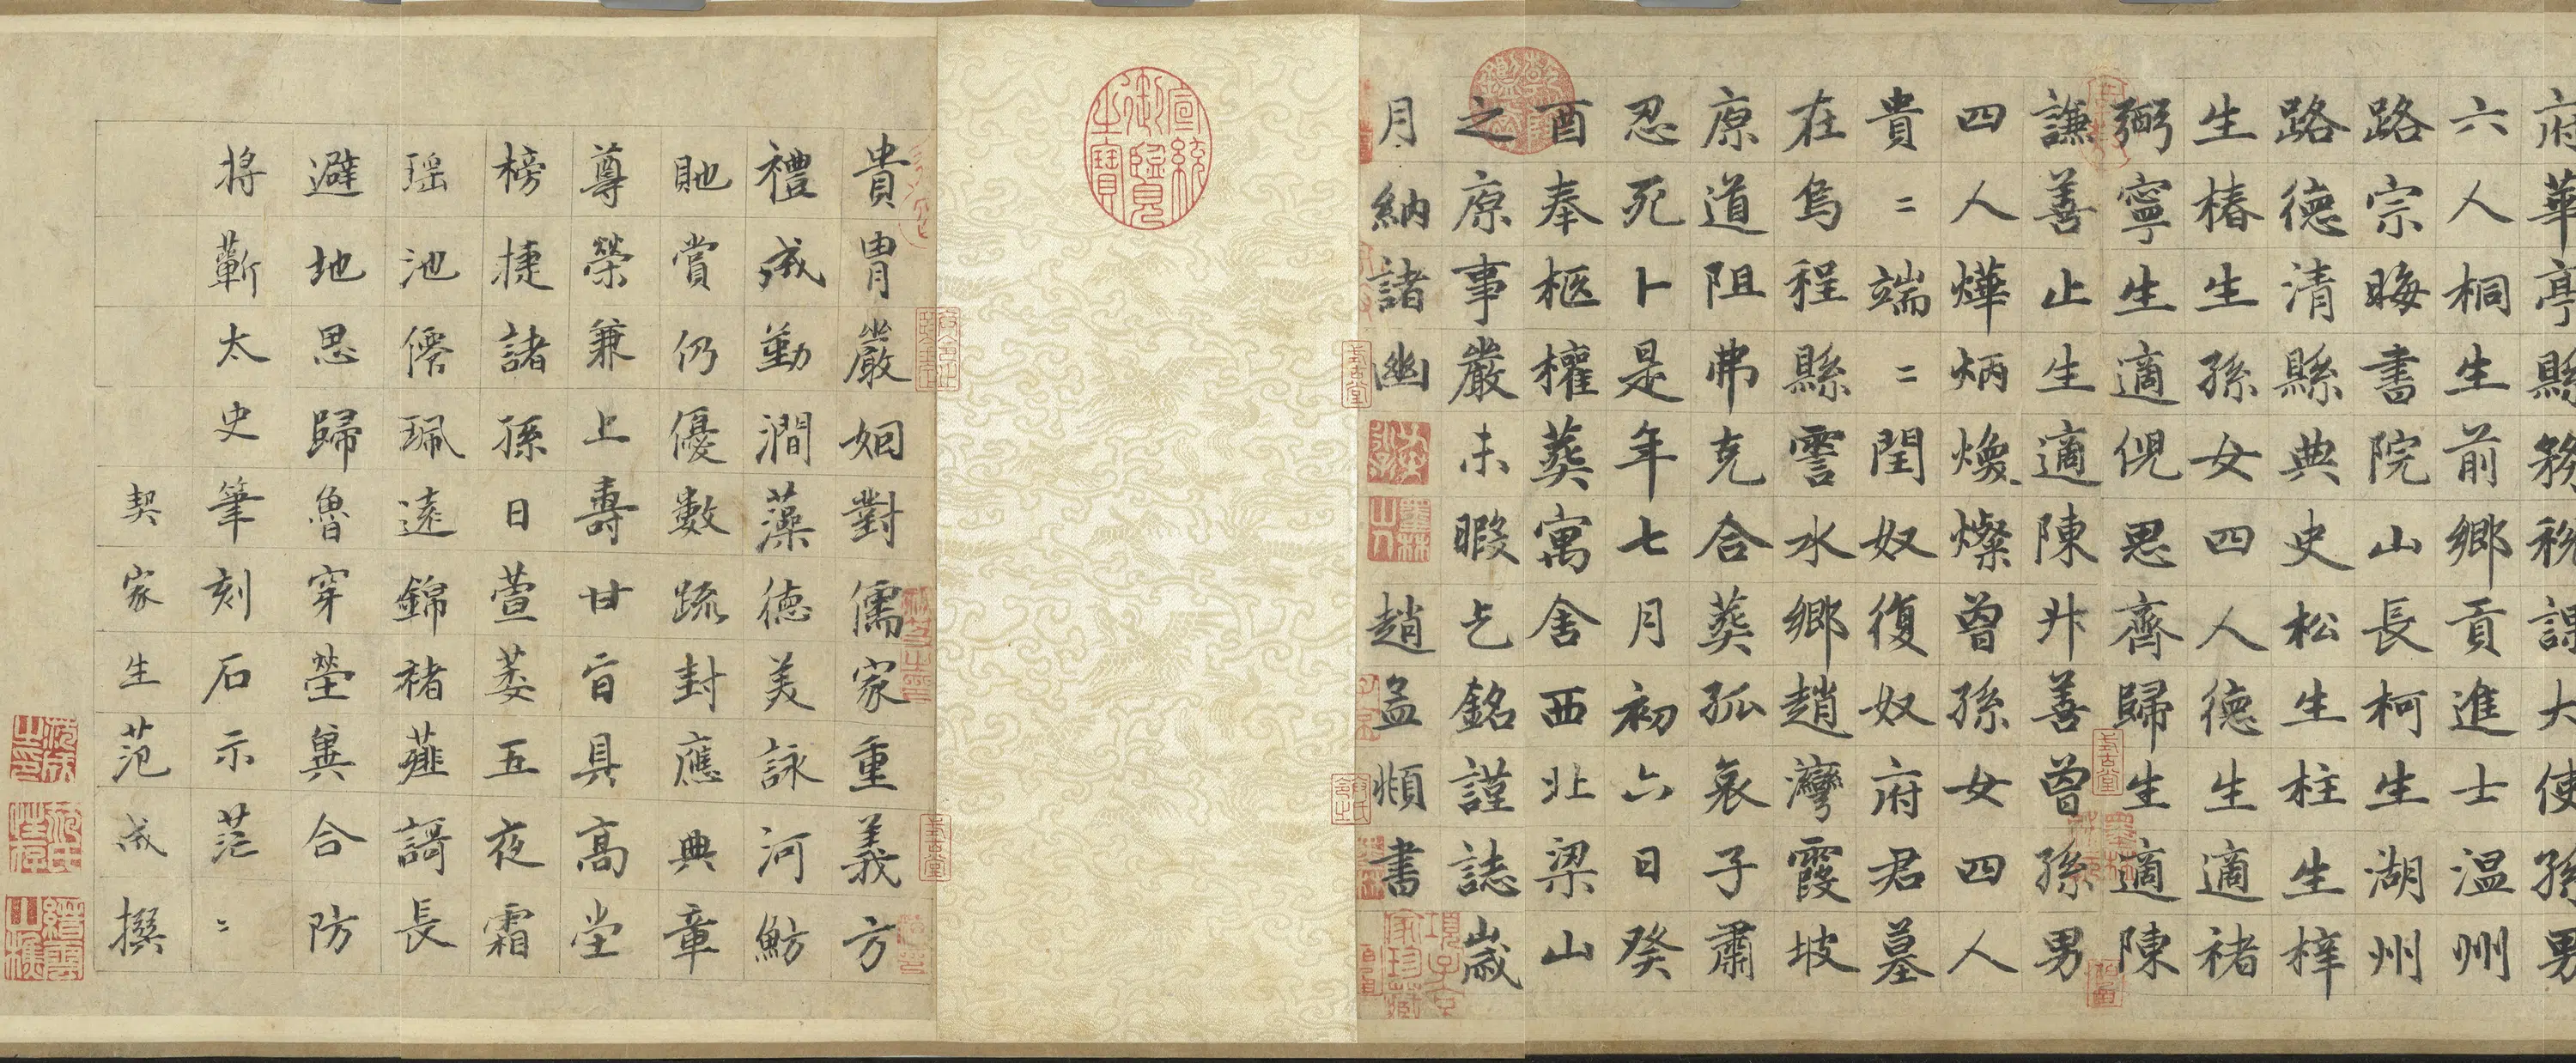 府華亭縣務稅課大使孫男
六人桐生前鄉貢進士温州
路宗晦書院山長柯生湖州
路德清縣典史松生柱生梓
生椿生孫女四人德生適褚
弼寧生適倪思齊歸生適陳
謙善止生適陳善曾孫男
四人燁炳煥燦曾孫女四人
貴〻端〻閏奴復奴府君墓
在烏程縣霅水鄉趙灣霞坡
原道阻弗克合葬孤哀子肅
忍死卜是年七月初六日癸
酉奉柩權葬寓舍西北梁山
之原事嚴未暇乞銘謹誌歲
月納諸幽趙孟頫書
宣統御覽之寶
貴胄嚴姻對儒家重義方
禮成勤澗藻德美詠河魴
貤賞仍優數疏封應典章
尊榮兼上壽甘旨具高堂
榜捷諸孫日萱萎五夜霜
瑶池僊珮遠錦褚薤謌長
避地思歸魯穿塋冀合防
將蘄太史筆刻石示茫〻
契家生范成撰